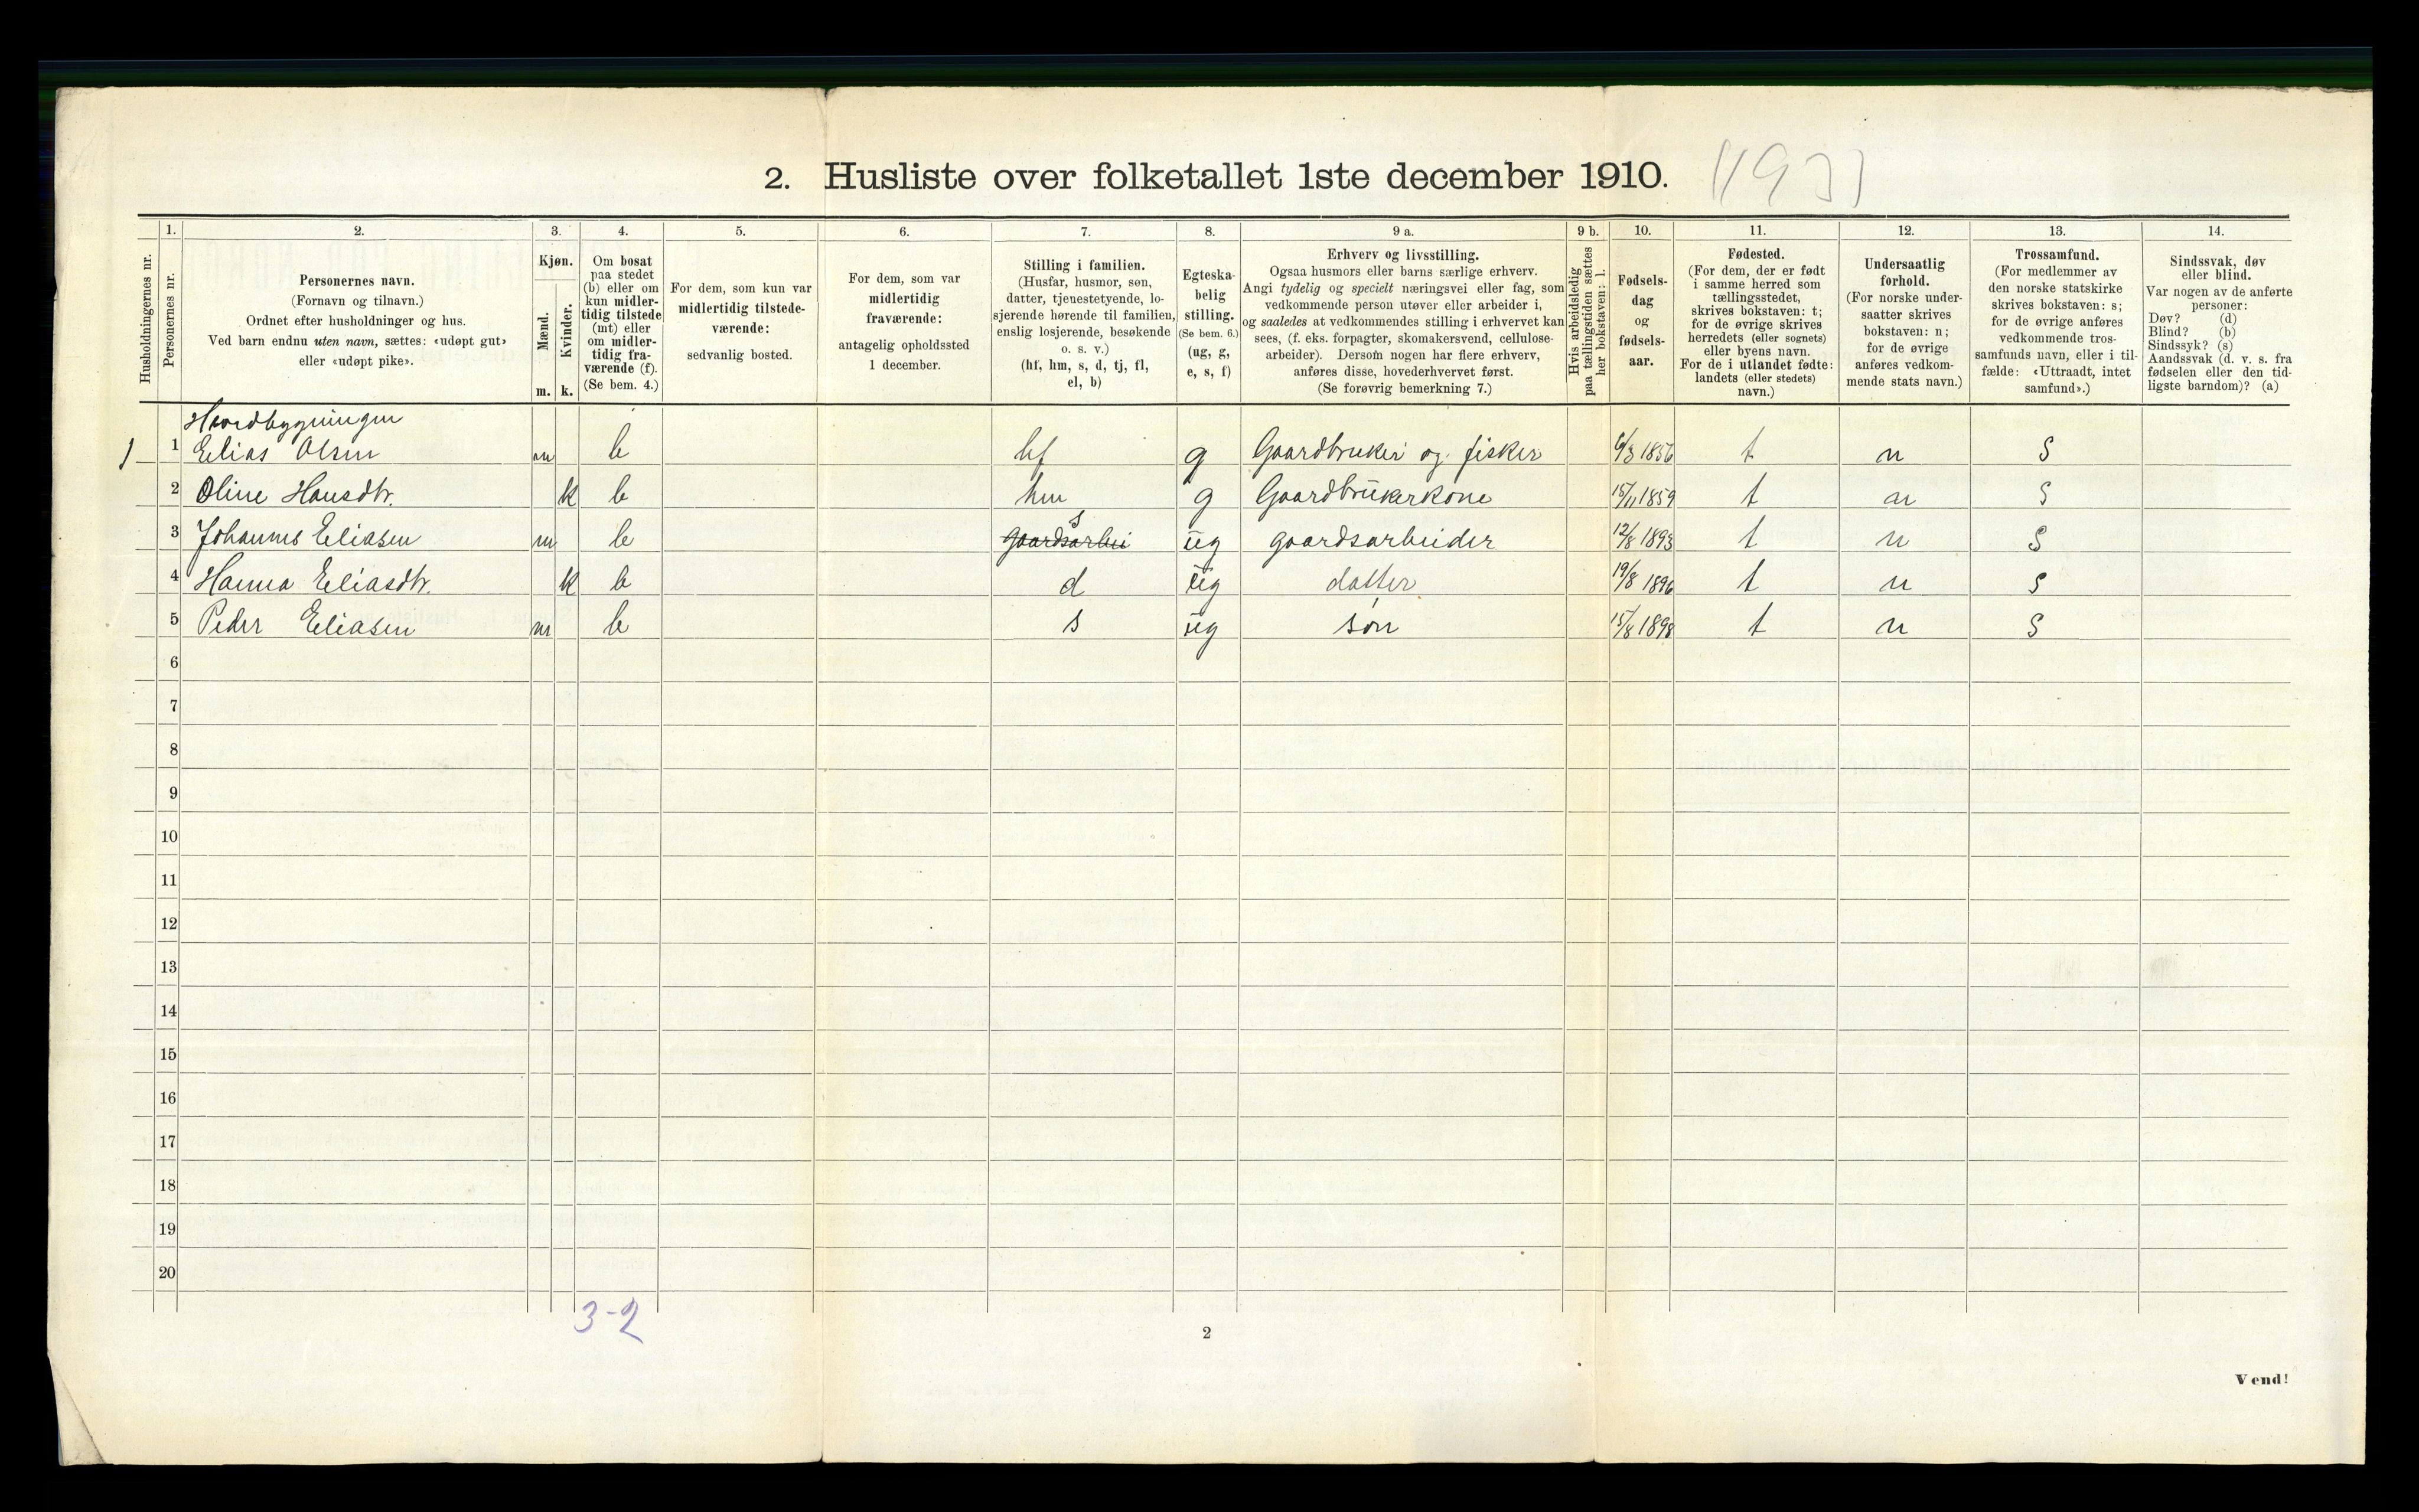 2. Husliste over folketallet 1ste december 1910.
1. 2. 3. 4. 5. 6. 7. 8. 9 a. 9 b. 10. 11. 12. 13. 14.
Husholdningernes nr.
Personernes nr.
Personernes navn.
(Fornavn og tilnavn.)
Ordnet efter husholdninger og hus.
Ved barn endnu uten navn, sættes: «udøpt gut»
eller «udøpt pike».
Kjøn.
Mænd.
m.
Kvinder.
k.
Om bosat
paa stedet
(b) eller om
kun midler-
tidig tilstede
(mt) eller
om midler-
tidig fra-
værende (f).
(Se bem. 4.)
For dem, som kun var
midlertidig tilstede-
værende:
sedvanlig bosted.
For dem, som var
midlertidig
fraværende:
antagelig opholdssted
1 december.
Stilling i familien.
(Husfar, husmor, søn,
datter, tjenestetyende, lo-
sjerende hørende til familien,
enslig losjerende, besøkende
o. s. v.)
(hf, hm, s, d, tj, fl,
el, b)
Egteska-
belig
stilling.
(Se bem. 6.)
(ug, g,
e, s, f)
Erhverv og livsstilling.
Ogsaa husmors eller barns særlige erhverv.
Angi tydelig og specielt næringsvei eller fag, som
vedkommende person utøver eller arbeider i,
og saaledes at vedkommendes stilling i erhvervet kan
sees, (f. eks. forpagter, skomakersvend, cellulose-
arbeider). Dersom nogen har flere erhverv,
anføres disse, hovederhvervet først.
(Se forøvrig bemerkning 7.)
Hvis arbeidsledig
paa tællingstiden sættes
her bokstaven: l.
Fødsels-
dag
og
fødsels-
aar.
Fødested.
(For dem, der er født
i samme herred som
tællingsstedet,
skrives bokstaven: t;
for de øvrige skrives
herredets (eller sognets)
eller byens navn.
For de i utlandet fødte:
landets (eller stedets)
navn.)
Undersaatlig
forhold.
(For norske under-
saatter skrives
bokstaven: n;
for de øvrige
anføres vedkom-
mende stats navn.)
Trossamfund.
(For medlemmer av
den norske statskirke
skrives bokstaven: s;
for de øvrige anføres
vedkommende tros-
samfunds navn, eller i til-
fælde: «Uttraadt, intet
samfund».)
Sindssvak, døv
eller blind.
Var nogen av de anførte
personer:
Døv? (d)
Blind? (b)
Sindssyk? (s)
Aandssvak (d. v. s. fra
fødselen eller den tid-
ligste barndom)? (a)
1 1 Elias Olsen m b hf g Gaardbruker og fisker 6/3 1856 t n S
2 Oline Hansdtr. k b hm g Gaardbrukerkone 15/11 1859 t n S
3 Johannes Eliasen m b gaardsarbei s ug gaardsarbeider 12/8 1893 t n S
4 Hanna Eliasdtr. k b d ug datter 19/8 1896 t n S
5 Peder Eliasen m b s ug søn 15/8 1898 t n S
6
7
8
9
10
11
12
13
14
15
16
17
18
19
20
3-2
2
Vend!